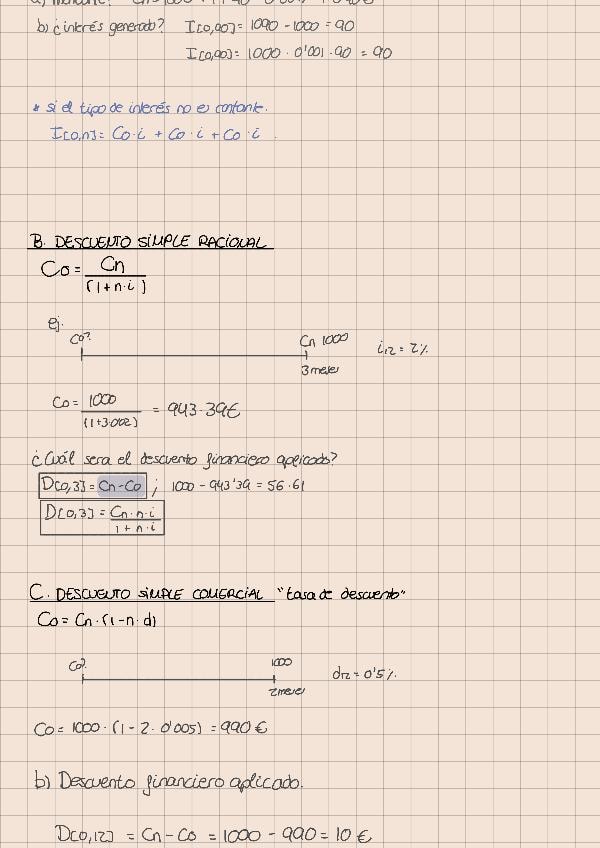 b) ¿interés generado? I[0,90] = 1090 - 1000 = 90
I[0,90] = 1000 · 0'001 · 90 = 90
* si el tipo de interés no es constante.
I[0,n] = Co·i + Co·i + Co·i
B. DESCUENTO SIMPLE RACIONAL
Co = Cn
(1+n·i)
ej.
Co? Cn 1000 i12 = 2%
3 meses
Co = 1000 = 943.39€
(1+3·0'02)
¿Cuál sera el descuento financiero aplicado?
D[0,3] = Cn-Co ; 1000 - 943'39 = 56.61
D[0,3] = Cn·n·i
1+n·i
C. DESCUENTO SIMPLE COMERCIAL "tasa de descuento"
Co = Cn·(1-n·d)
Co? 1000 d12 = 0'5%
2 meses
Co = 1000 · (1 - 2 · 0'005) = 990 €
b) Descuento financiero aplicado.
D[0,12] = Cn - Co = 1000 - 990 = 10 €